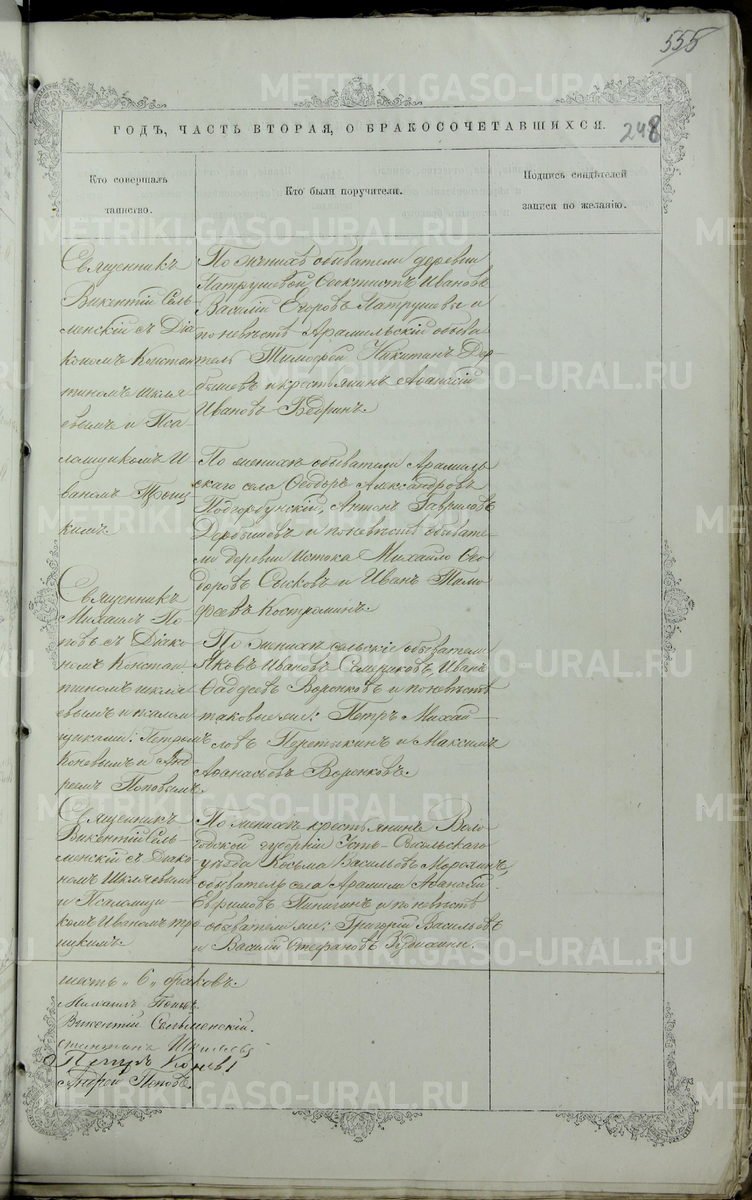 555
ГОДЪ, ЧАСТЬ ВТОРАЯ, О БРАКОСОЧЕТАВШИХСЯ.
248
Кто совершалъ
таинство.
Кто были поручители.
Подпись свидѣтелей
записи по желанію.
Священникъ
Викентій Сель-
менскій съ Діа
кономъ Констан
тиномъ Шкля
евымъ и Пса
ломщикомъ И
ваномъ Троиц
кимъ.
По женихѣ обыватели деревни
Патрушевой, Ѳеоктистъ Ивановъ
Василій Егоровъ Патрушевы и
по невѣстѣ Арамильскій обыва
тель Тимофей Никитинъ Дер-
бышевъ и крестьянинъ Аѳанасій
Ивановъ
По женихѣ обыватели Арамиль
скаго села Ѳеодоръ Александровъ
Подгорбунскій, Антонъ Гавриловъ
Деробышовъ и по невѣстѣ обывате
ли деревни Истока Михайло Ѳео
доровъ Сысковъ и Иванъ Тимо
феевъ Костроминъ.
Священникъ
Михаилъ По
повъ съ Діако
номъ Констан
тиномъ Шкля
евымъ и псалом
щиками: Петромъ
Коневымъ и Анд
реемъ Поповымъ.
По женихѣ сельскіе обыватели
Яковъ Ивановъ Иванъ
Ѳаддеевъ Воронковъ и по невѣстѣ
таковые же: Петръ Михай-
ловъ Перетыкинъ и Максимъ
Аѳанасьевъ Воронковъ.
Священникъ
Викентій Сель-
менскій съ Діако
номъ Шкляевымъ
и Псаломщи-
комъ Иваномъ Тро
ицкимъ.
По женихѣ крестьянинъ Воло
годской губерніи Усть-Сысольскаго
уѣзда Козьма Васильевъ Морозинъ,
обыватель села Арамили Аѳанасій
Ефимовъ Пинигинъ и по невѣстѣ
обыватели же: Григорій Васильевъ
и Василій Стефановъ
шесть „6„ браковъ.
Михаилъ Поповъ
Викентій Сельменскій.
Петръ Коневъ
Андрей Поповъ.
METRIKI.GASO-URAL.RU